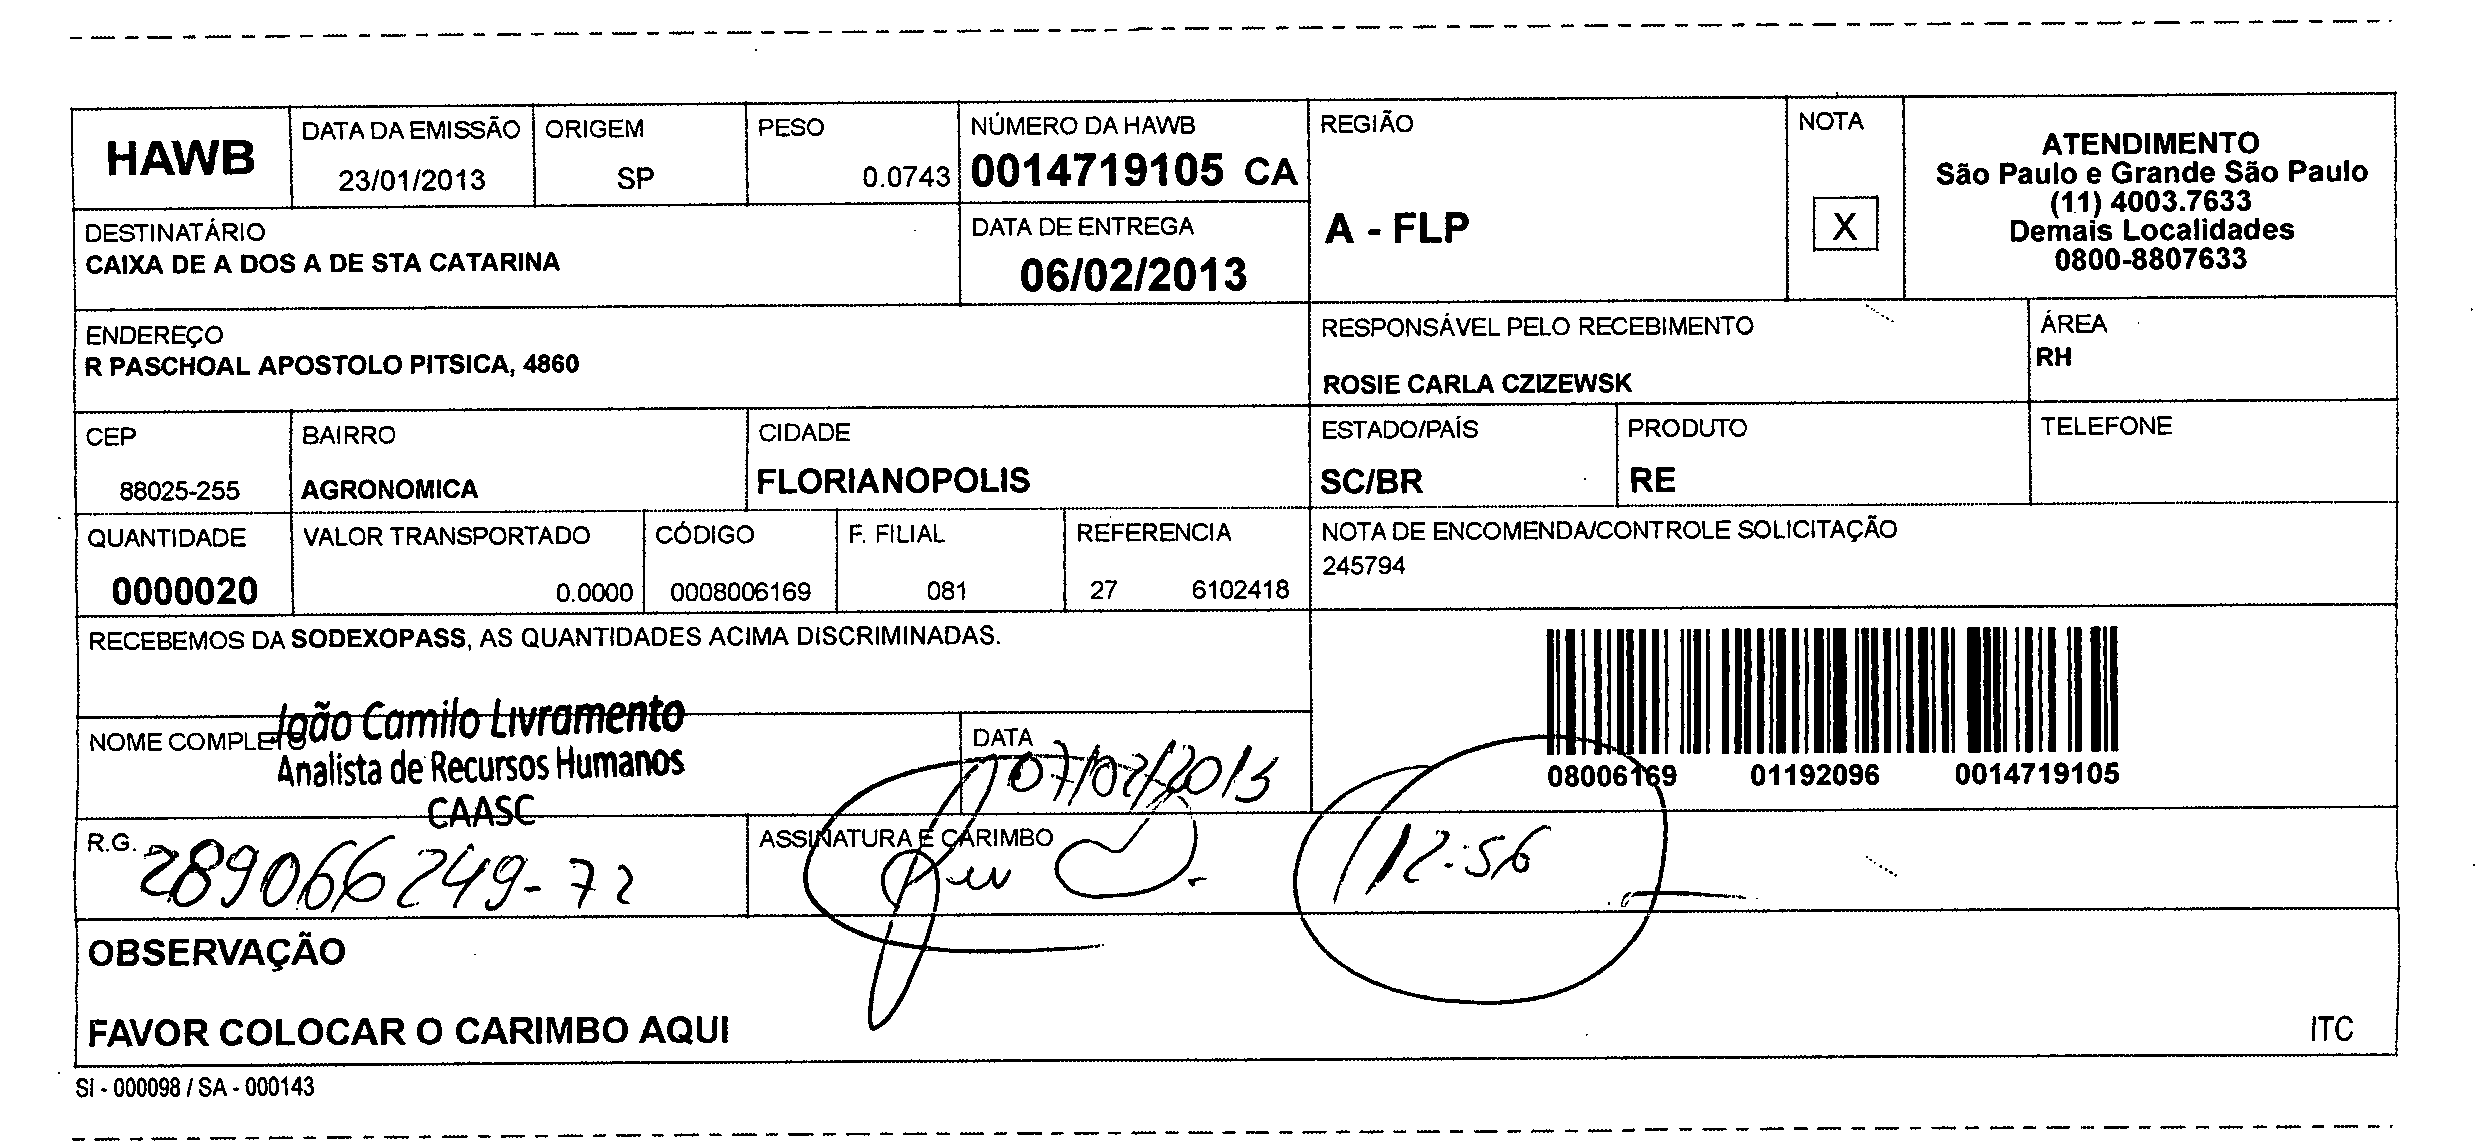 HAWB
DATA DA EMISSÃO
23/01/2013
ORIGEM
SP
PESO
0.0743
NÚMERO DA HAWB
0014719105 CA
REGIÃO
A - FLP
NOTA
X
ATENDIMENTO
São Paulo e Grande São Paulo
(11) 4003.7633
Demais Localidades
0800-8807633
DESTINATÁRIO
CAIXA DE A DOS A DE STA CATARINA
DATA DE ENTREGA
06/02/2013
ENDEREÇO
R PASCHOAL APOSTOLO PITSICA, 4860
RESPONSÁVEL PELO RECEBIMENTO
ROSIE CARLA CZIZEWSK
ÁREA
RH
CEP
88025-255
BAIRRO
AGRONOMICA
CIDADE
FLORIANOPOLIS
ESTADO/PAÍS
SC/BR
PRODUTO
RE
TELEFONE
QUANTIDADE
0000020
VALOR TRANSPORTADO
0.0000
CÓDIGO
0008006169
F. FILIAL
081
REFERENCIA
27 6102418
NOTA DE ENCOMENDA/CONTROLE SOLICITAÇÃO
245794
RECEBEMOS DA SODEXOPASS, AS QUANTIDADES ACIMA DISCRIMINADAS.
08006169 01192096 0014719105
NOME COMPLETO
João Camilo Livramento
Analista de Recursos Humanos
CAASC
DATA
07/02/2013
R.G.
289066249-72
ASSINATURA E CARIMBO
12:56
OBSERVAÇÃO
FAVOR COLOCAR O CARIMBO AQUI
ITC
SI - 000098 / SA - 000143